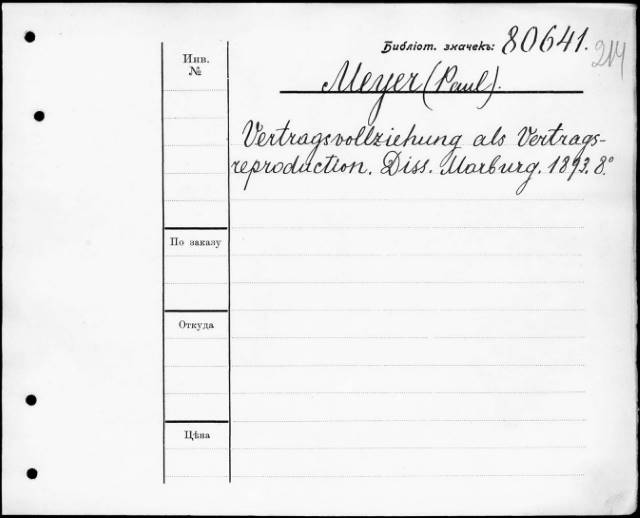 Библіот. значекъ: 80641.
214
Инв.
№
Meyer (Paul).
Vertragsvollziehung als Vertrags-
reproduction. Diss. Marburg. 1893. 8°
По заказу
Откуда
Цѣна